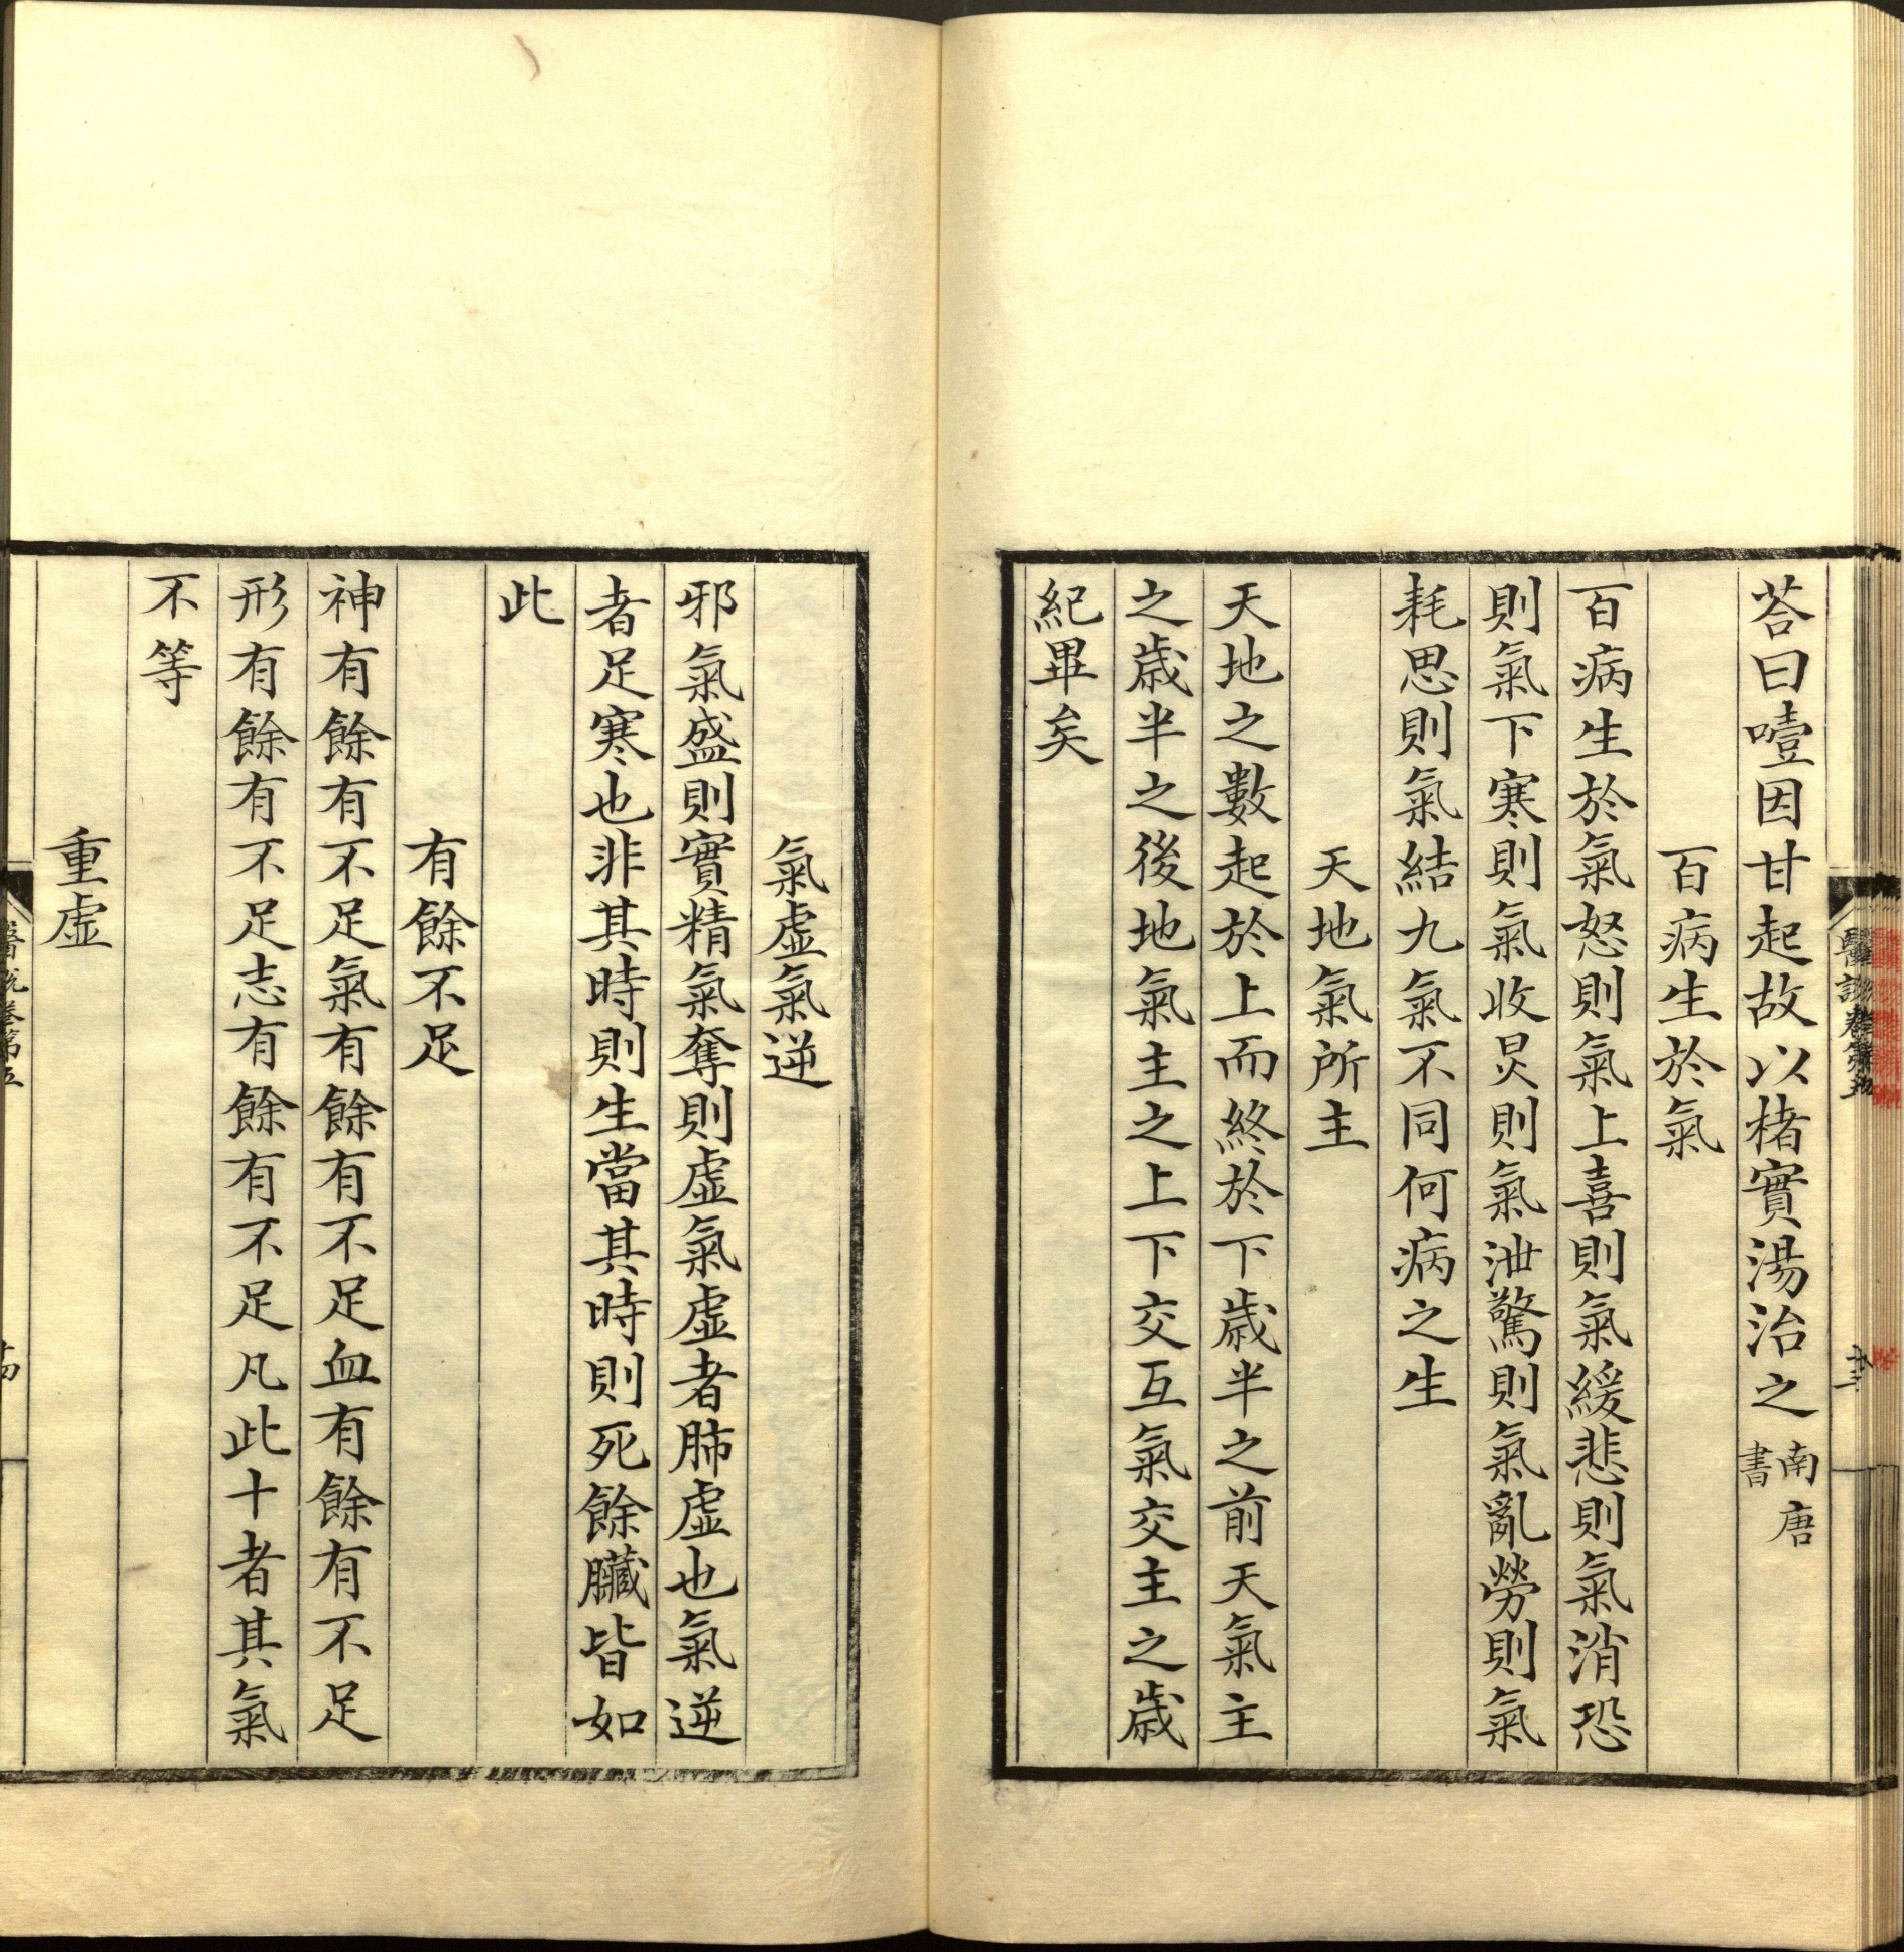 荅曰噎因甘起故以楮實湯治之南唐書
百病生於氣
百病生於氣怒則氣上喜則氣緩悲則氣消恐
則氣下寒則氣收炅則氣泄驚則氣亂勞則氣
耗思則氣結九氣不同何病之生
天地氣所主
天地之數起於上而終於下歲半之前天氣主
之歲半之後地氣主之上下交互氣交主之歲
紀畢矣
氣虛氣逆
邪氣盛則實精氣奪則虛氣虛者肺虛也氣逆
者足寒也非其時則生當其時則死餘臟皆如
此
有餘不足
神有餘有不足氣有餘有不足血有餘有不足
形有餘有不足志有餘有不足凡此十者其氣
不等
重虛
醫說卷第五
十四